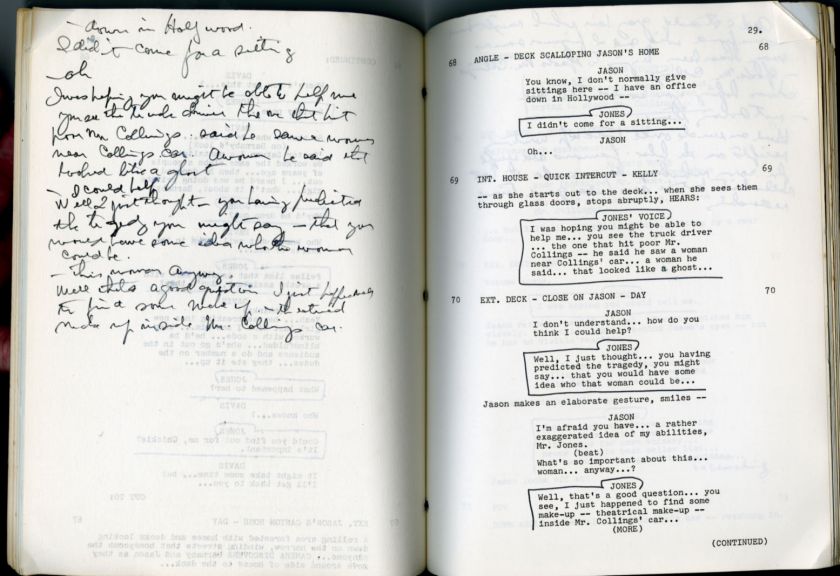 down in Hollywood.
I didn't come for a sitting
- oh
I was hoping you might be able to help me
you see the truck driver the one that hit
poor Mr. Collings.. said he saw a woman
near Collings car. A woman he said that
looked like a ghost
- I could help
Well I just thought - you having predicted
the tragedy you might say - that you
would have some idea who the woman
could be.
- This woman anyway.
Well that's a good question I just happened
to find some make up - theatrical
make up inside Mr. Collings car.
29.
68 ANGLE - DECK SCALLOPING JASON'S HOME 68
JASON
You know, I don't normally give
sittings here -- I have an office
down in Hollywood --
JONES
I didn't come for a sitting...
JASON
Oh...
69 INT. HOUSE - QUICK INTERCUT - KELLY 69
-- as she starts out to the deck... when she sees them
through glass doors, stops abruptly, HEARS:
JONES' VOICE
I was hoping you might be able to
help me... you see the truck driver
... the one that hit poor Mr.
Collings -- he said he saw a woman
near Collings' car... a woman he
said... that looked like a ghost...
70 EXT. DECK - CLOSE ON JASON - DAY 70
JASON
I don't understand... how do you
think I could help?
JONES
Well, I just thought... you having
predicted the tragedy, you might
say... that you would have some
idea who that woman could be...
Jason makes an elaborate gesture, smiles --
JASON
I'm afraid you have... a rather
exaggerated idea of my abilities,
Mr. Jones.
(beat)
What's so important about this...
woman... anyway...?
JONES
Well, that's a good question... you
see, I just happened to find some
make-up -- theatrical make-up --
inside Mr. Collings' car...
(MORE)
(CONTINUED)